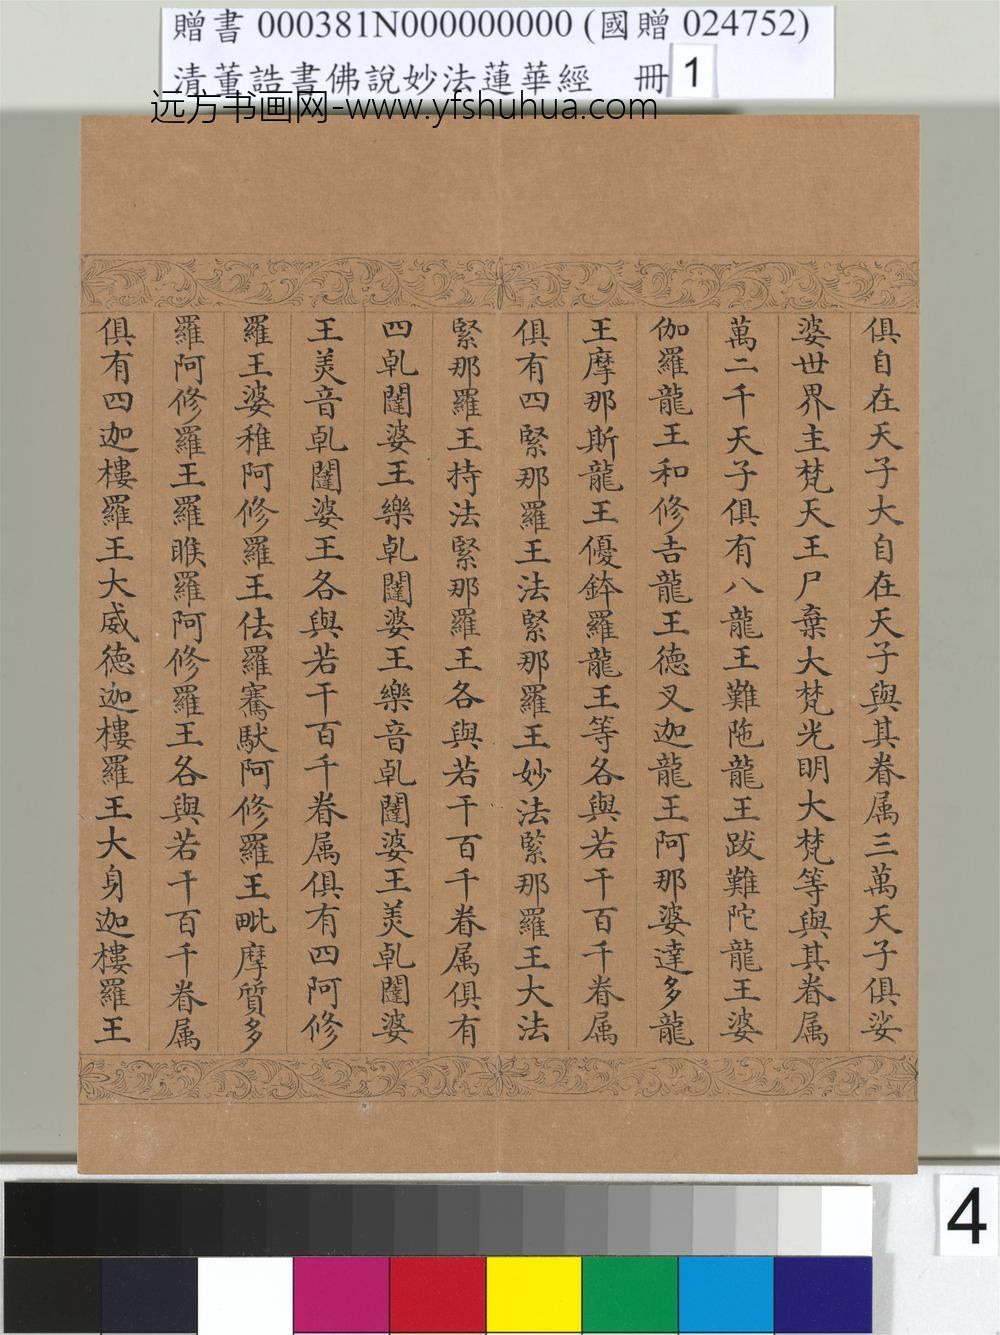 贈書 000381N000000000 (國贈 024752)
清董誥書佛說妙法蓮華經 冊 1
远方书画网-www.yfshuhua.com
俱自在天子大自在天子與其眷属三萬天子俱娑
婆世界主梵天王尸棄大梵光明大梵等與其眷属
萬二千天子俱有八龍王難陁龍王跋難陀龍王婆
伽羅龍王和修吉龍王德叉迦龍王阿那婆達多龍
王摩那斯龍王優鉢羅龍王等各與若干百千眷属
俱有四緊那羅王法緊那羅王妙法緊那羅王大法
緊那羅王持法緊那羅王各與若干百千眷属俱有
四乹闥婆王樂乹闥婆王樂音乹闥婆王美乹闥婆
王美音乹闥婆王各與若干百千眷属俱有四阿修
羅王婆稚阿修羅王佉羅騫馱阿修羅王毗摩質多
羅阿修羅王羅睺羅阿修羅王各與若干百千眷属
俱有四迦樓羅王大威德迦樓羅王大身迦樓羅王
4